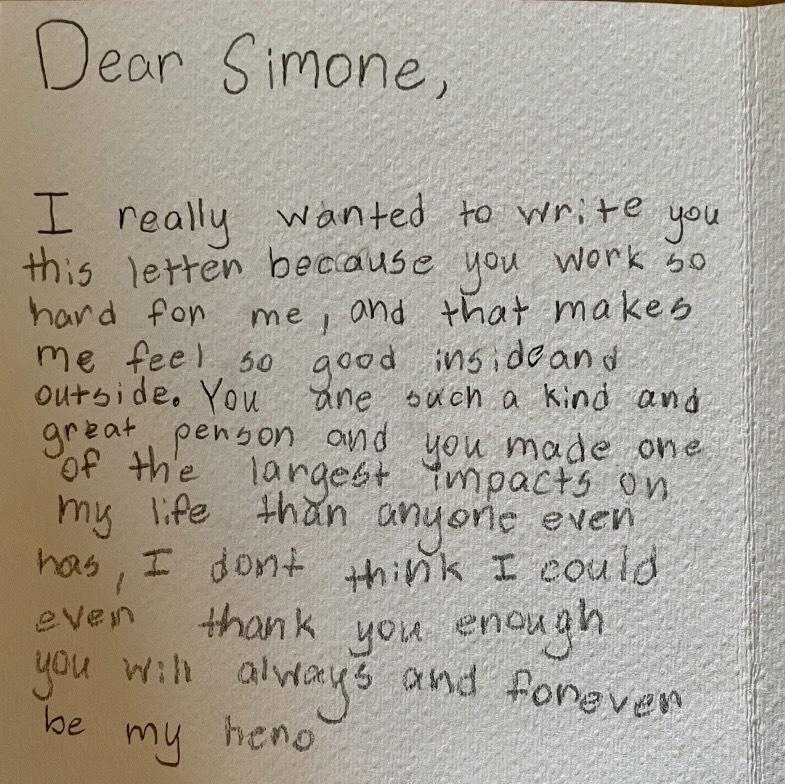 Dear Simone,
I really wanted to write you
this letter because you work so
hard for me, and that makes
me feel so good inside and
outside. You are such a kind and
great person and you made one
of the largest impacts on
my life than anyone ever
has, I dont think I could
ever thank you enough
you will always and forever
be my hero